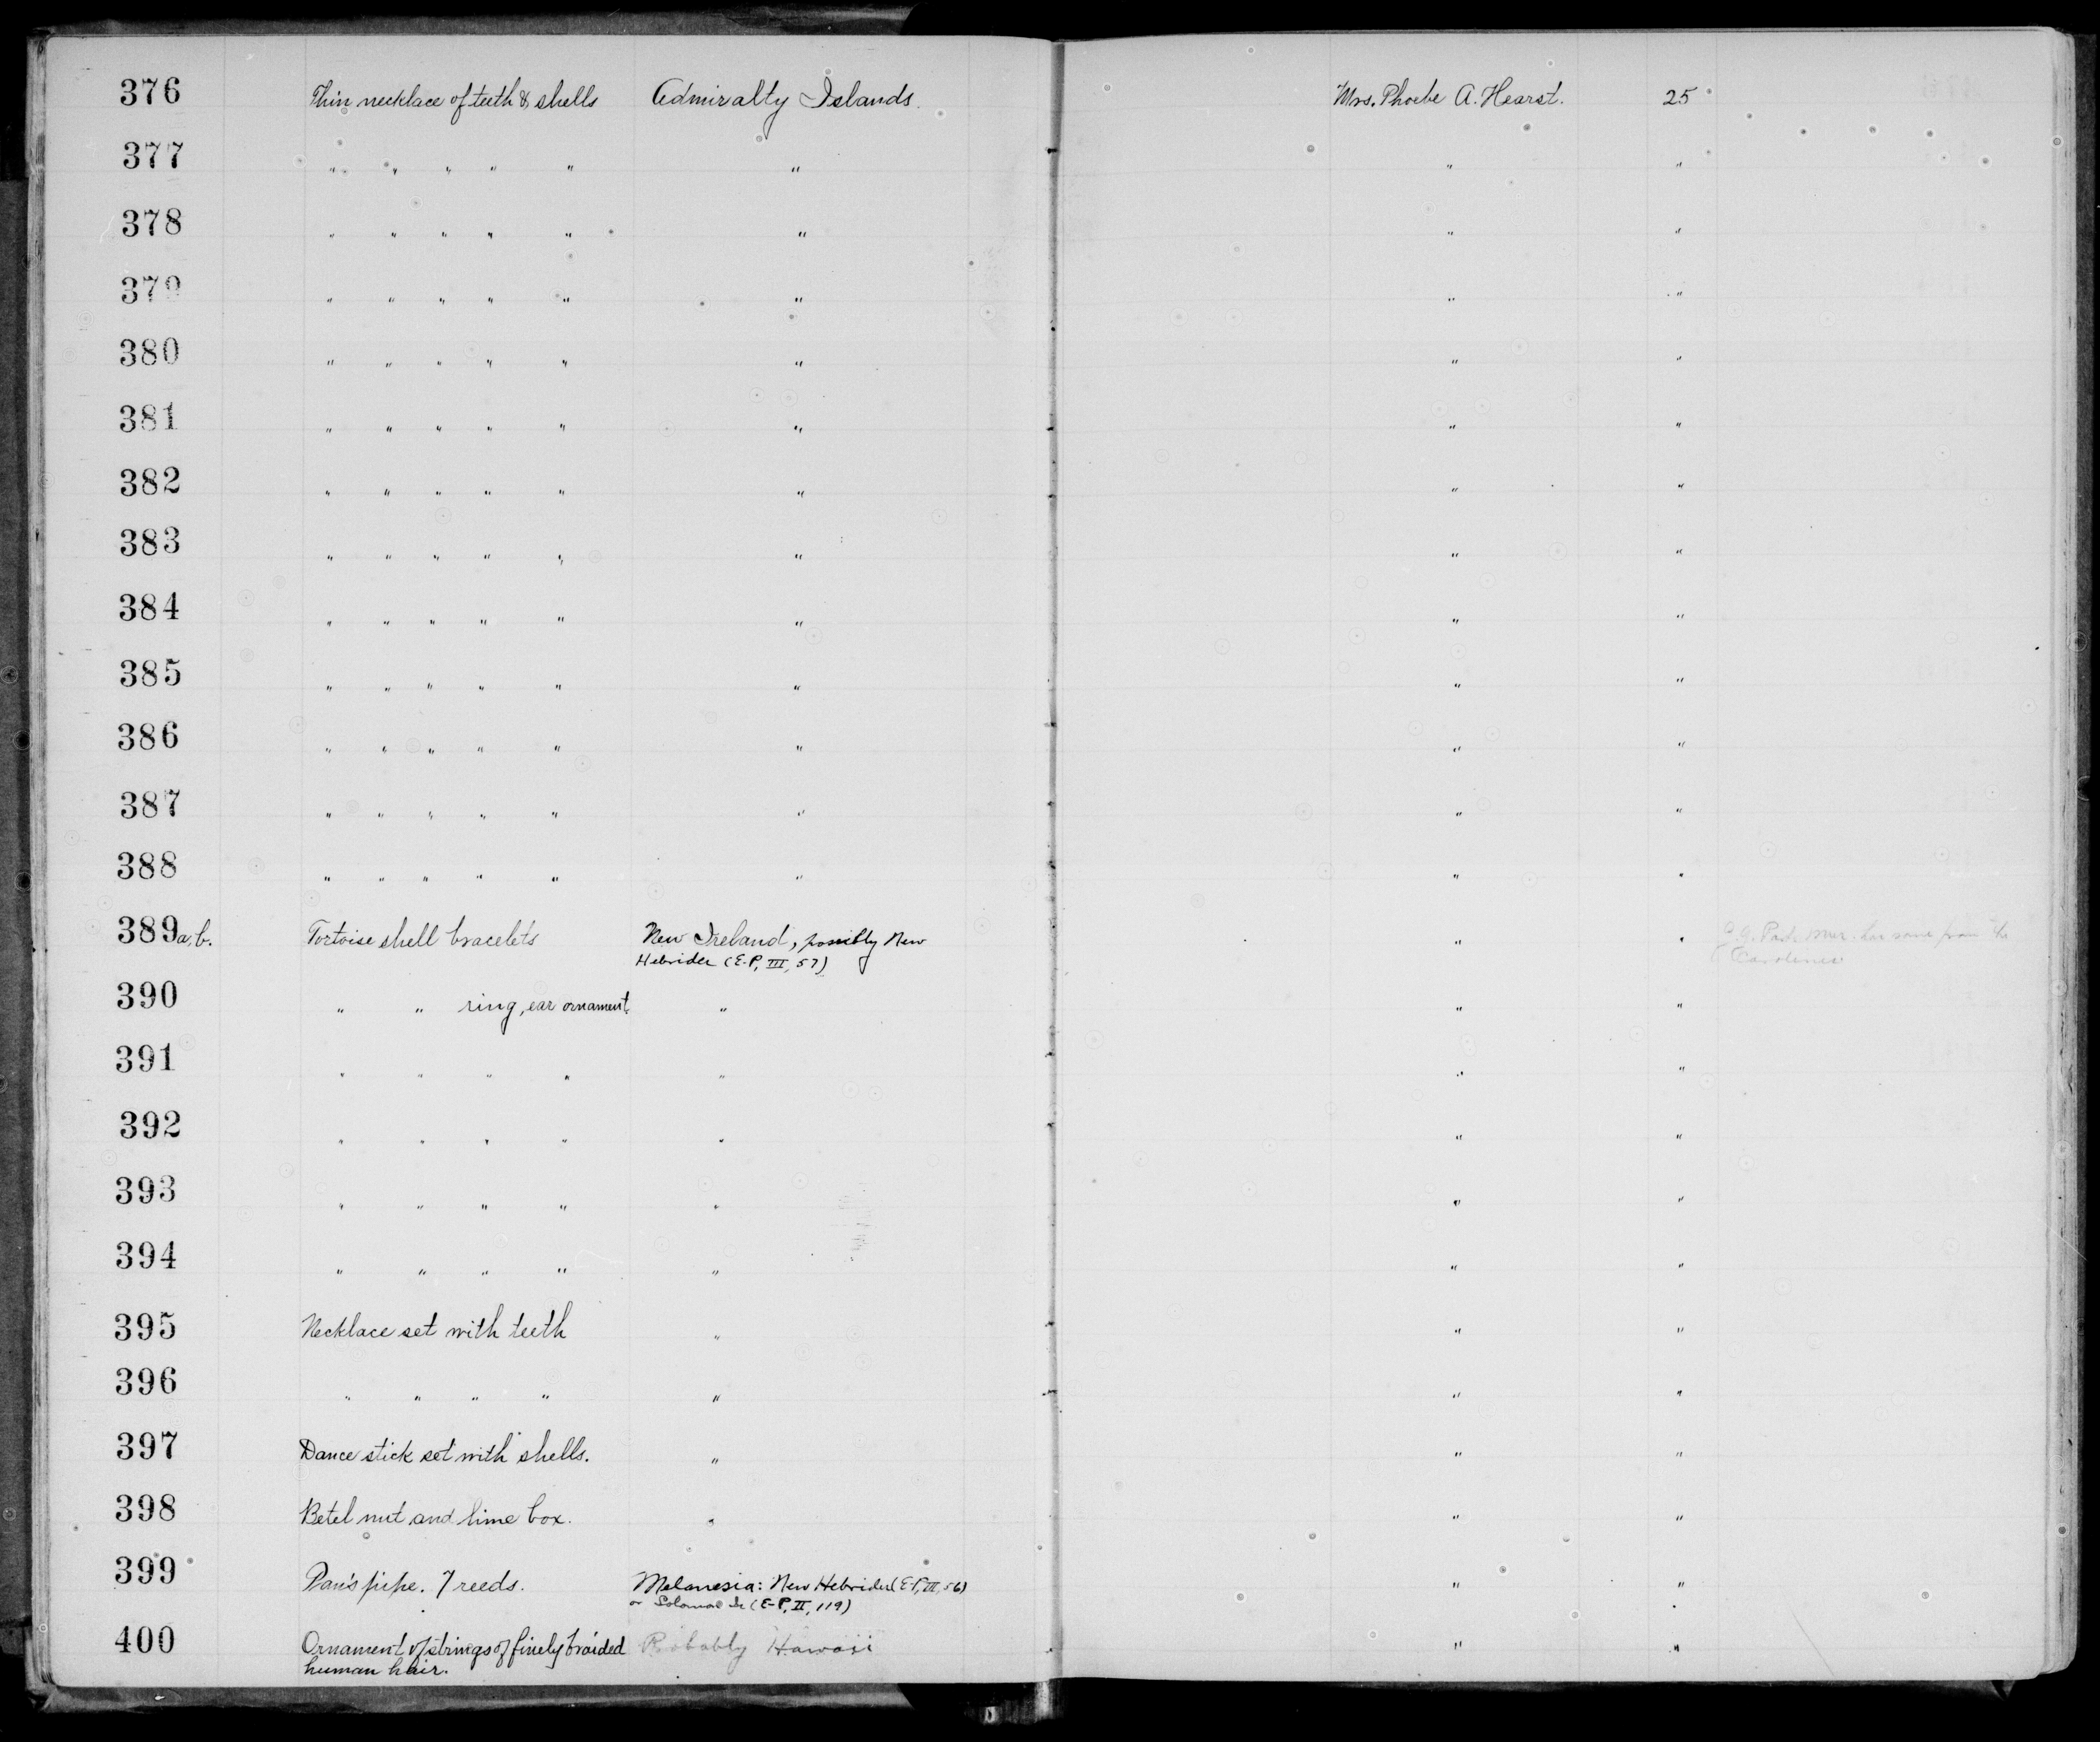 376 Thin necklace of teeth & shells Admiralty Islands. Mrs. Phoebe A. Hearst. 25
377 " " " " " " " "
378 " " " " " " " "
379 " " " " " " " "
380 " " " " " " " "
381 " " " " " " " "
382 " " " " " " " "
383 " " " " " " " "
384 " " " " " " " "
385 " " " " " " " "
386 " " " " " " " "
387 " " " " " " " "
388 " " " " " " " "
389 a, b. Tortoise shell bracelets New Ireland, possibly New " "
Hebrides (E-P, III, 57)
Carolines
390 " " ring, ear ornament. " " "
391 " " " " " " "
392 " " " " " " "
393 " " " " " " "
394 " " " " " " "
395 Necklace set with teeth " " "
396 " " " " " " "
397 Dance stick set with shells. " " "
398 Betel nut and lime box. " " "
399 Pan's pipe. 7 reeds. Melanesia: New Hebrides (E-P, III, 56) " "
or Solomon Is (E-P, II, 119)
400 Ornament of strings of finely braided Probably Hawaii " "
human hair.